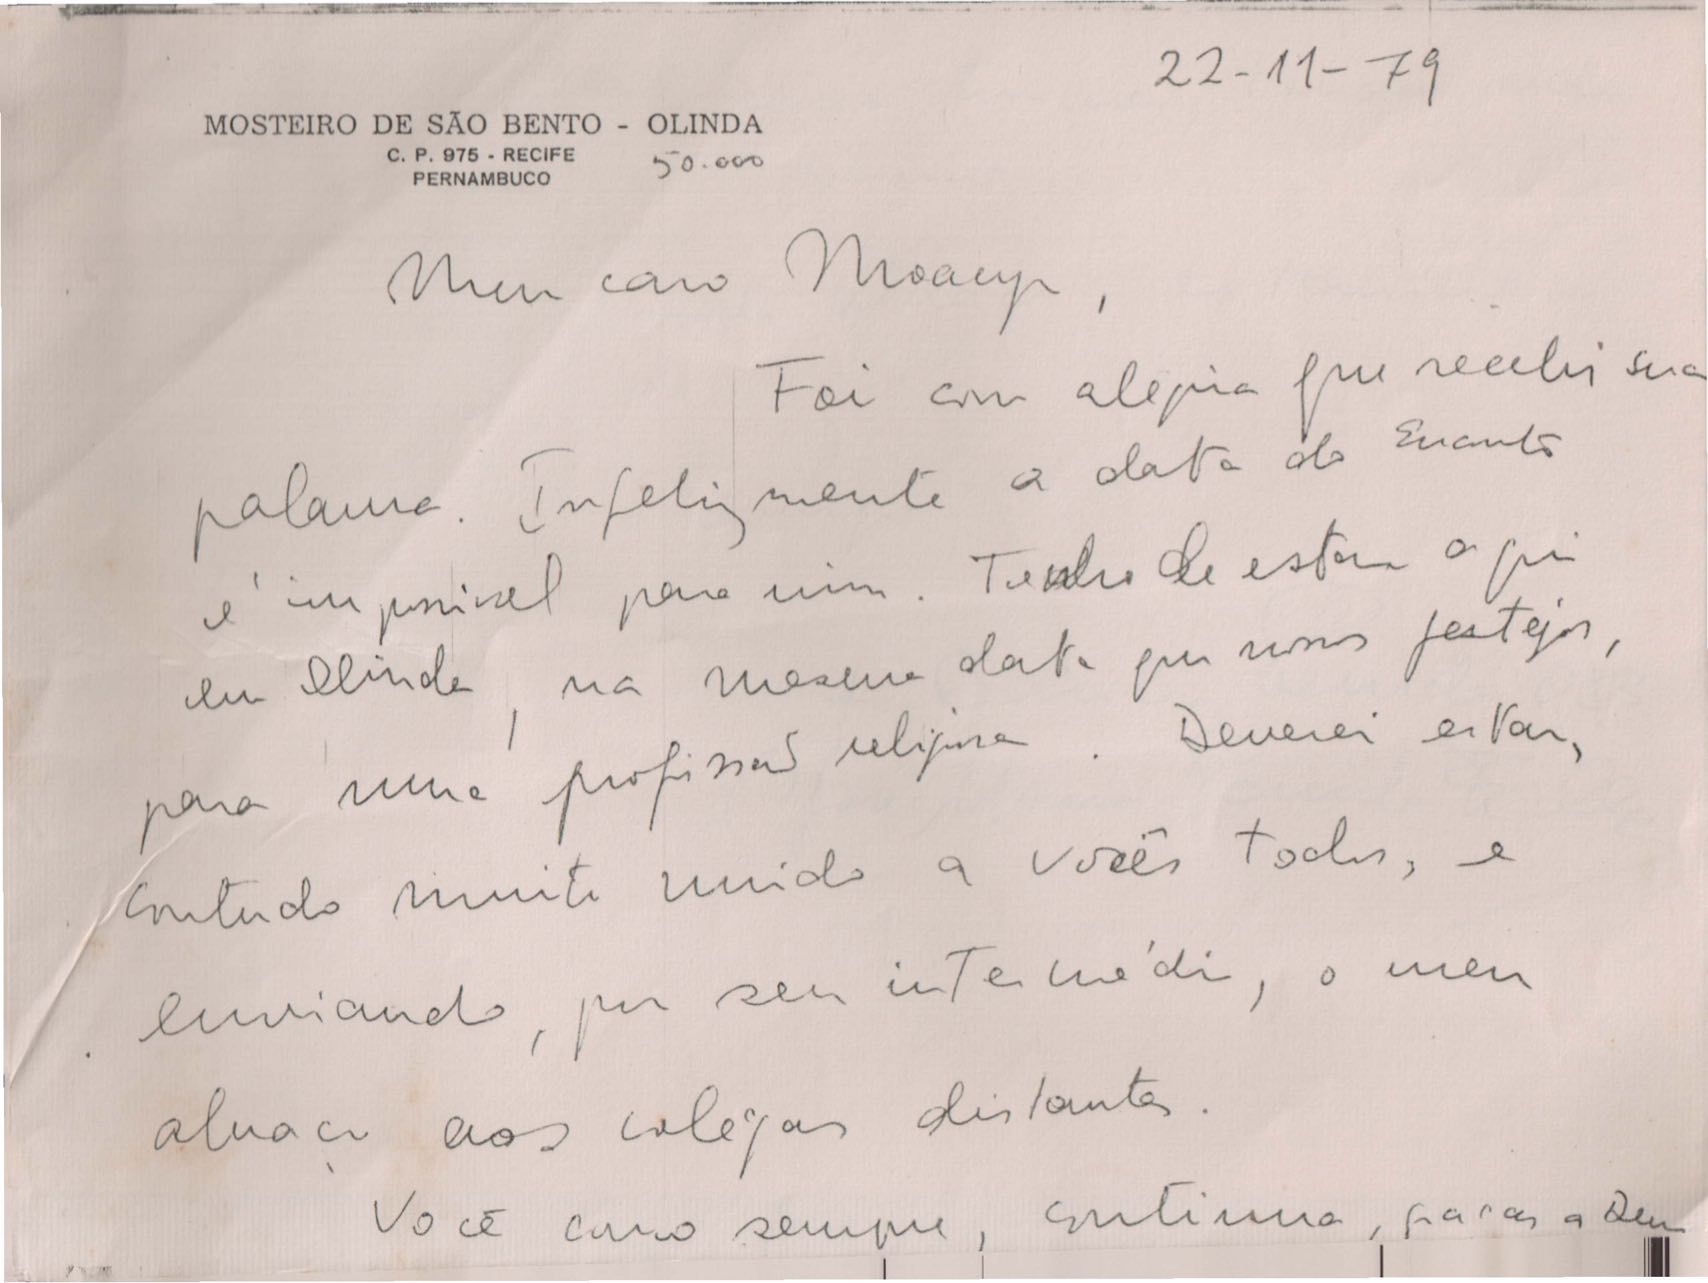 22-11-79
MOSTEIRO DE SÃO BENTO - OLINDA
C. P. 975 - RECIFE 50.000
PERNAMBUCO
Meu caro Moacyr,
Foi com alegria que recebi sua
palavra. Infelizmente a data do Encontro
é impossível para mim. Tenho de estar aqui
em Olinda, na mesma data que nossos festejos,
para uma profissão religiosa. Deverei estar,
contudo muito unido a vocês todos, e
enviando, por seu intermédio, o meu
abraço aos colegas distantes.
Você como sempre, continua, graças a Deus